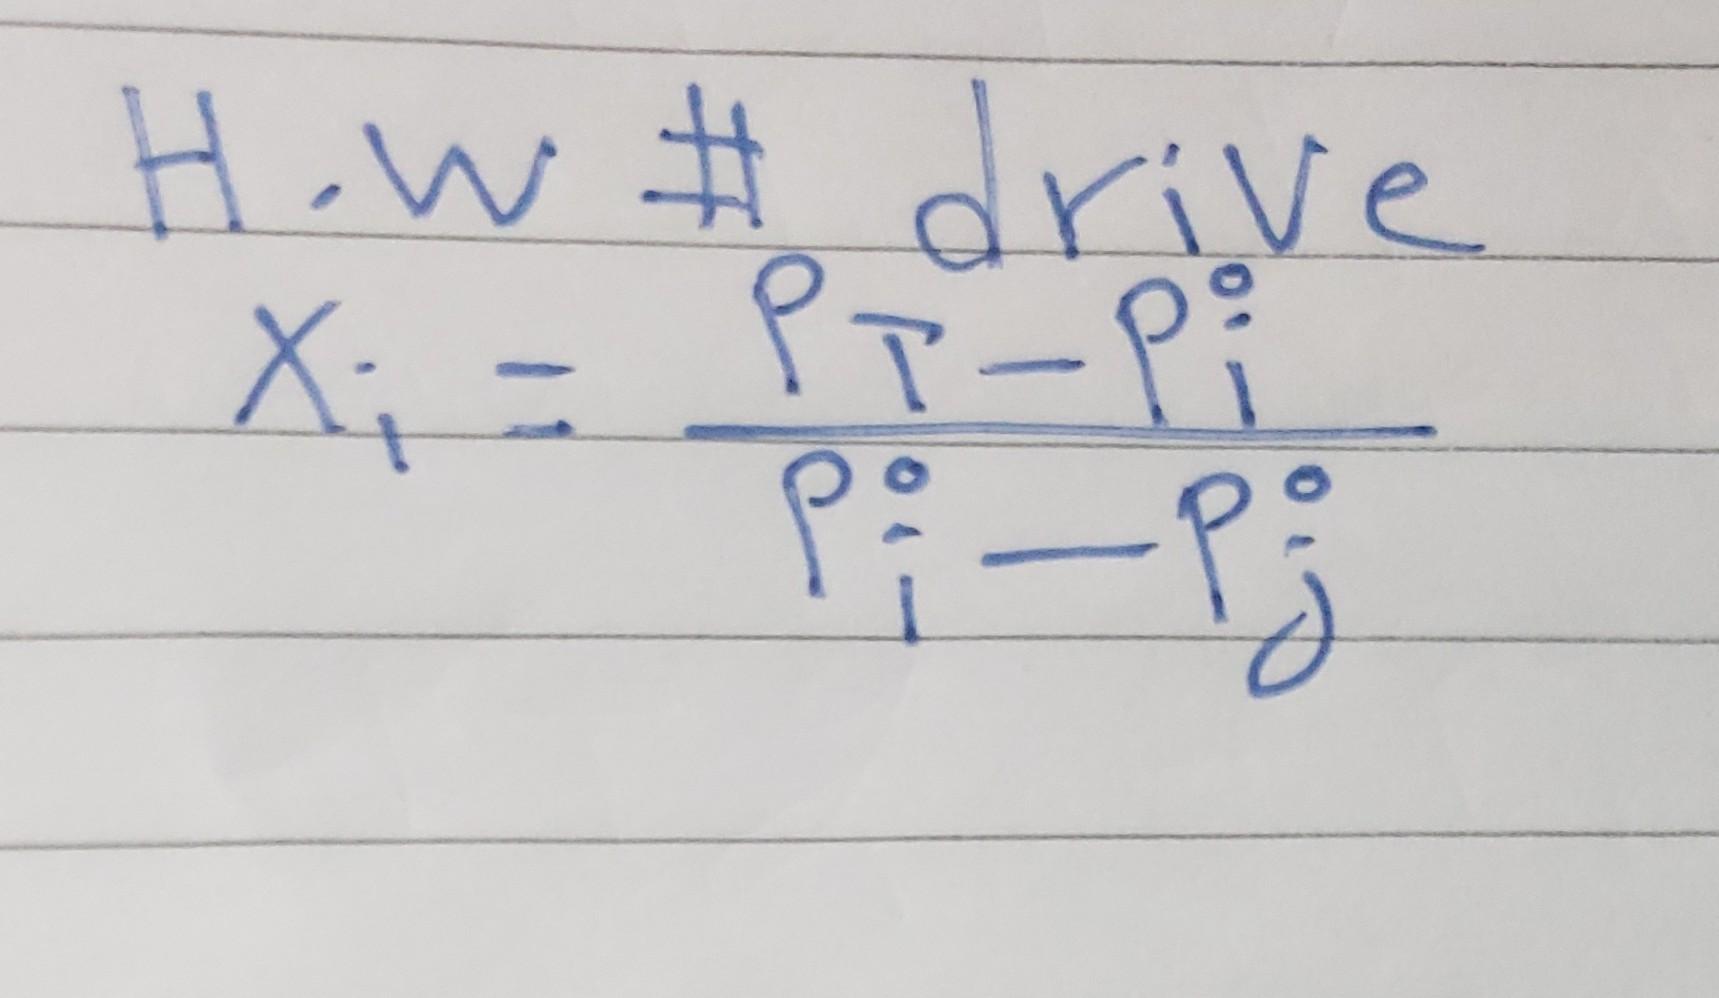 H.W # drive
Xi = PT - P°i
P°i - P°j